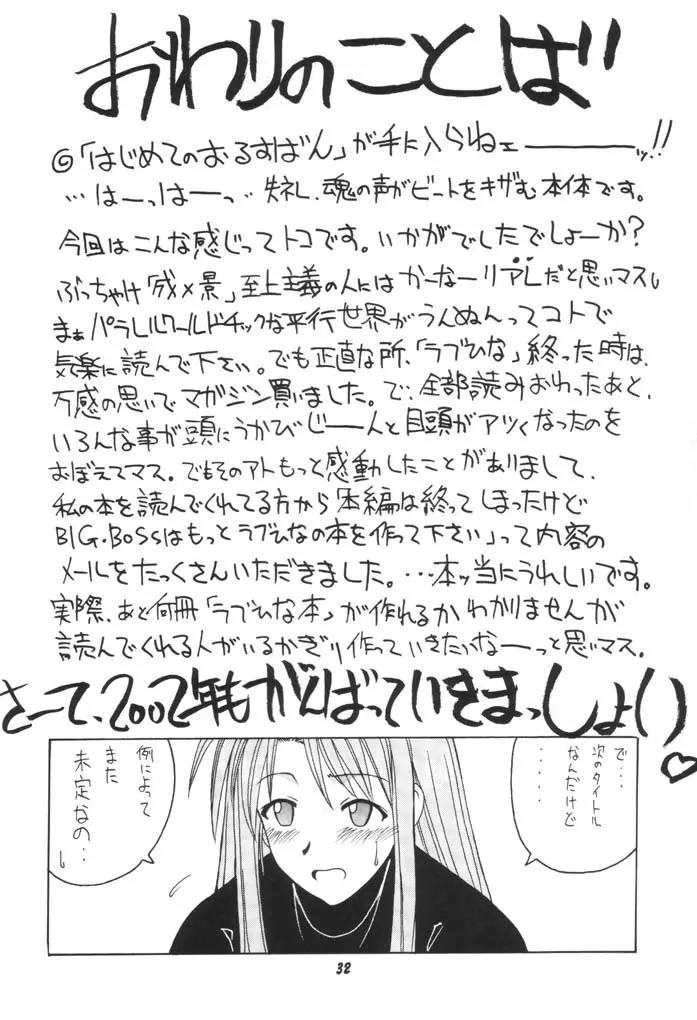 おわりのことば
◎「はじめてのおるすばん」が手に入らねェ―――ッ!!
…はーっはーっ‥失礼し、魂の声がビートをキザむ本体です。
今回はこんな感じってトコです。いかがでしたでしょーか?
ぶっちゃけ「成×景」至上主義の人にはかーなーリアルだと思いマスし
まぁパラレルワールドチックな平行世界がうんぬんってコトで
気楽に読んで下さい。でも正直な所、「ラブひな」終った時は、
万感の思いでマガジン買いました。で、全部読みおわったあと、
いろんな事が頭にうかびじーーんと目頭がアツくなったのを
おぼえてマス。でもそのアトもっと感動したことがありまして、
私の本を読んでくれてる方から「本編は終ってしまったけど
BIG.BOSSはもっとラブひなの本を作って下さい」って内容の
メールをたっくさんいただきました。…本ッ当にうれしいです。
実際、あと何冊「ラブひな本」が作れるかわかりませんが
読んでくれる人がいるかぎり作っていきたいなーっと思いマス。
さーて、2002年もがんばっていきまっしょい♡
で‥‥
次のタイトル
なんだけど
‥‥‥
例によって
また
未定なの‥
32